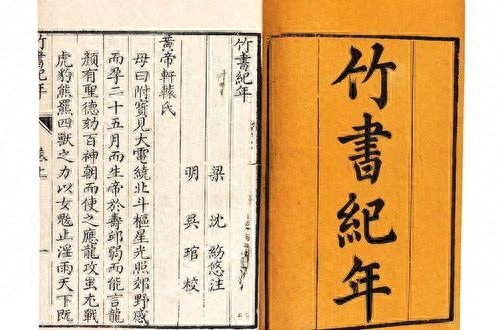 竹書紀年
竹書紀年
梁 沈 約悠注
明 吳 琯校
黃帝軒轅氏
母曰附寶見大電繞北斗樞星光照郊野感
而孕二十五月而生帝於壽邱弱而能言龍
顏有聖德劾百神朝而使之應龍攻蚩尤戰
虎豹熊羆四獸之力以女魃止淫雨天下既
竹書紀年 卷上 一